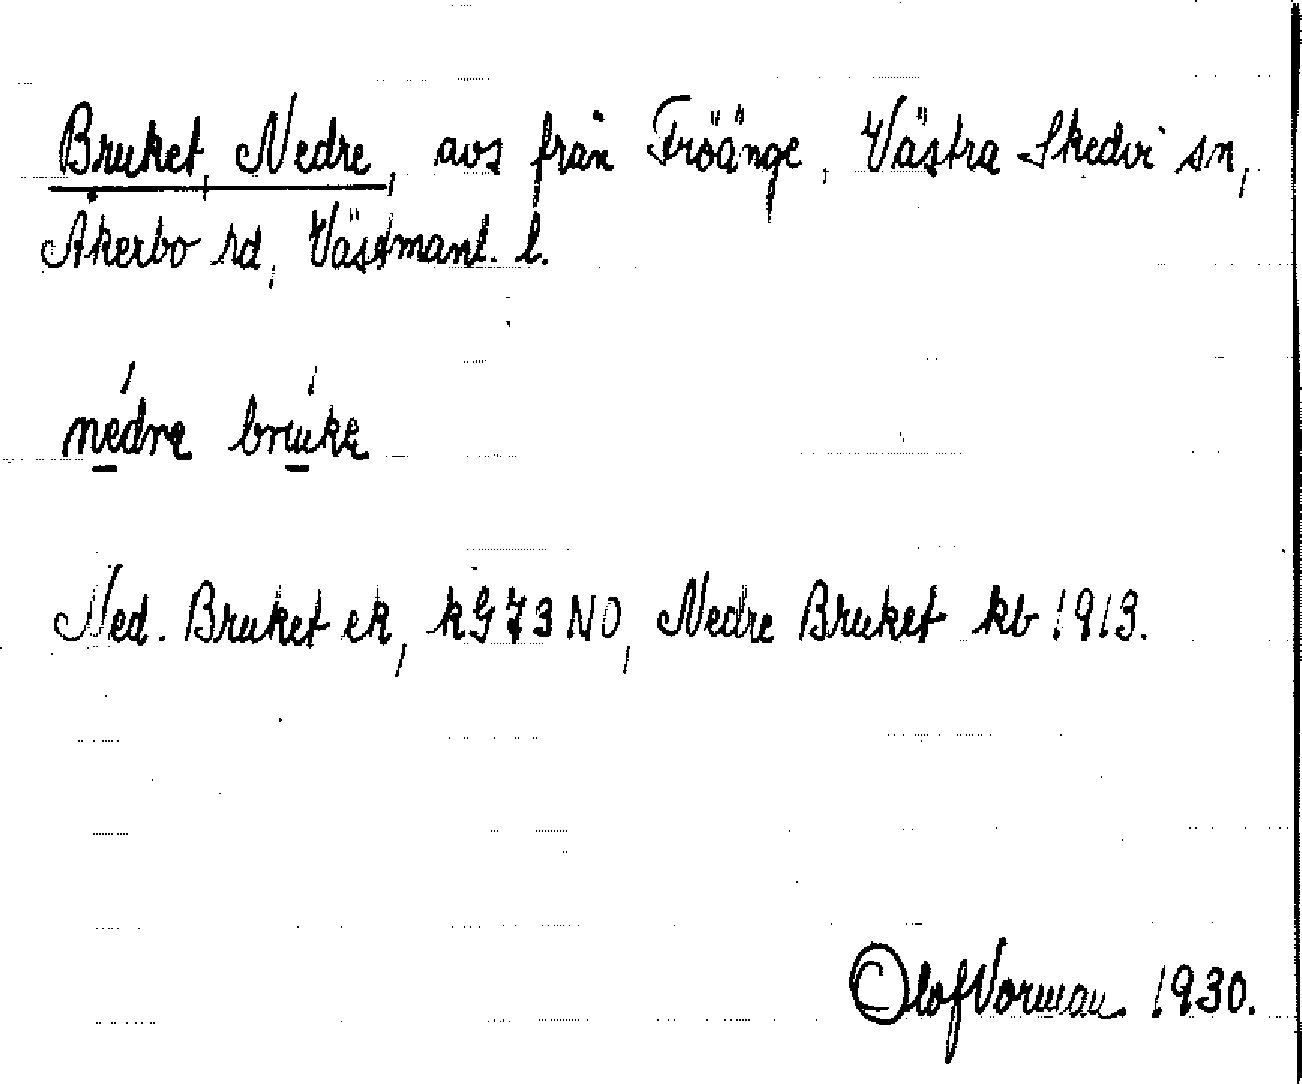 Bruket, Nedre, avs från Fröänge, Västra Skedvi sn,
Åkerbo hd, Västmanl. l.
nédrę brúkę
Ned. Bruket ek, kG73NO, Nedre Bruket kb 1913.
Olof Vorman. 1930.